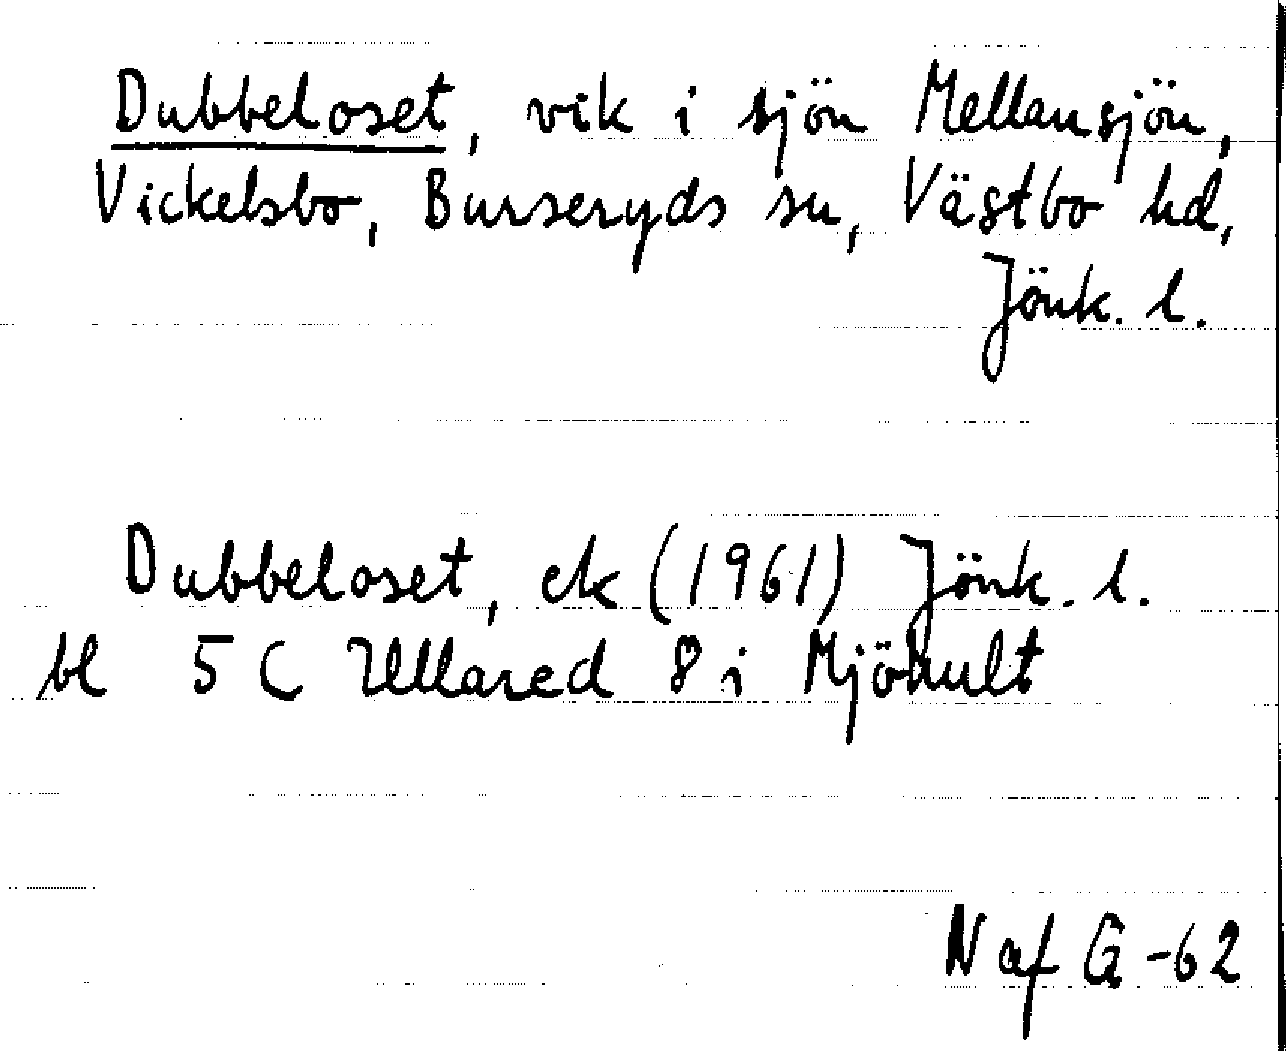 Dubbeloset, vik i sjön Mellansjön,
Vickelsbo, Burseryds sn, Västbo hd,
Jönk. l.
Dubbeloset, ek (1961) Jönk. l.
bl 5 C Ullared 8 i Mjöhult
N af G -62